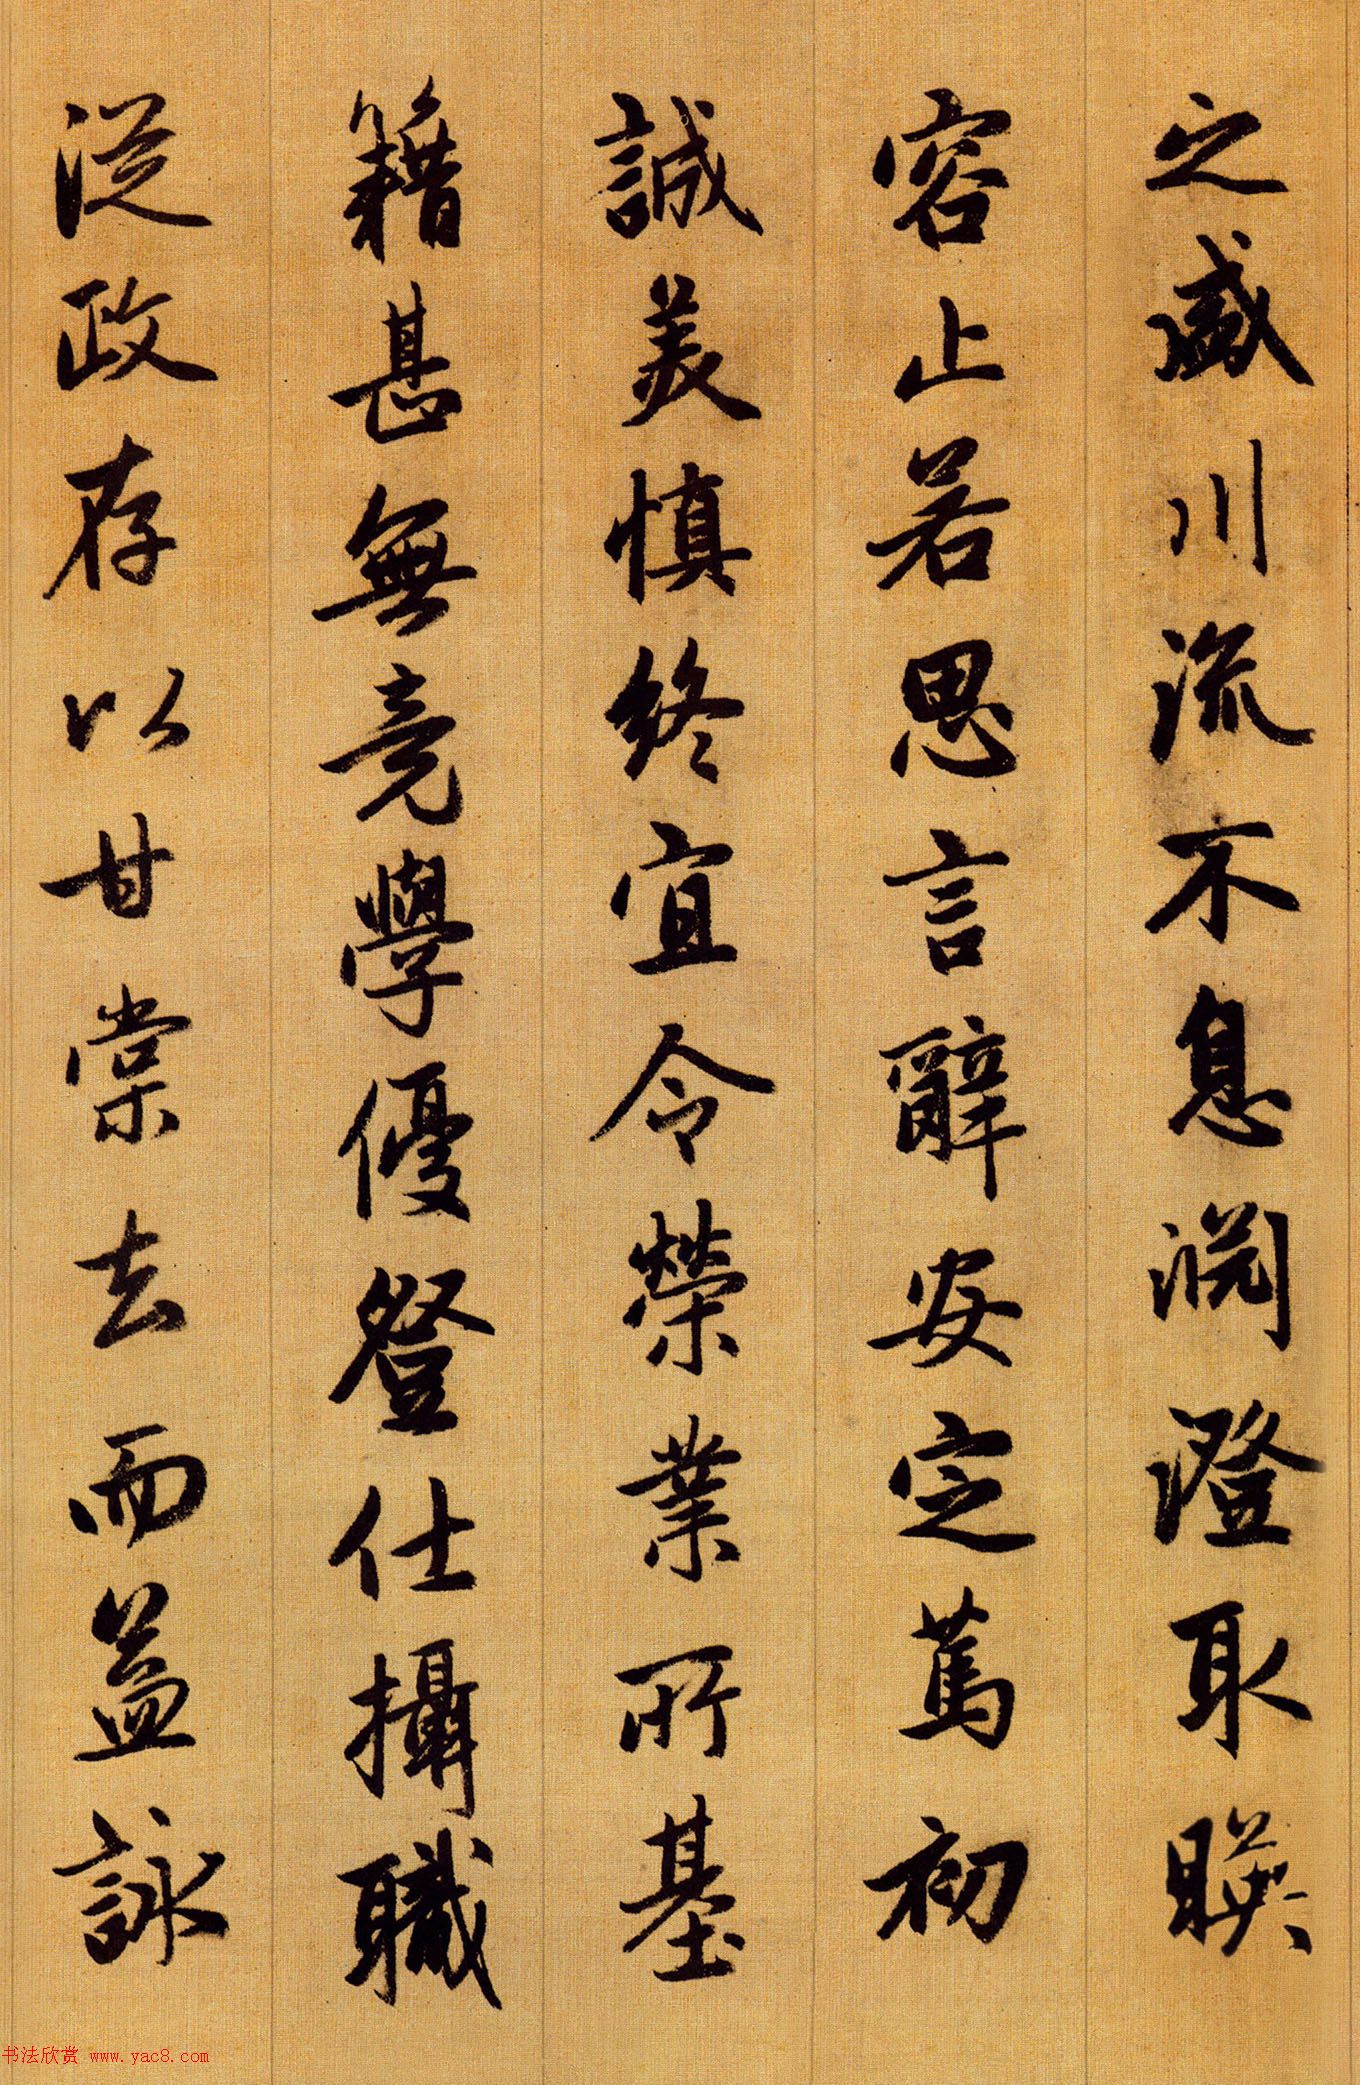 之盛川流不息淵澄取暎
容止若思言辭安定篤初
誠美慎終宜令榮業所基
籍甚無竟學優登仕攝職
從政存以甘棠去而益詠
书法欣赏 www.yac8.com